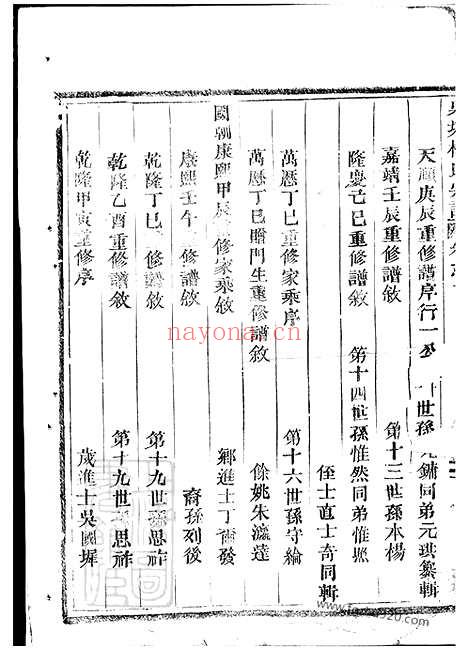 天順庚辰重修譜序行一公 世孫元鏞同弟元琪纂輯
嘉靖壬辰重修譜敘 第十三世孫本楊
隆慶己巳重修譜敘 第十四世孫惟然同弟惟熈
侄士直士奇同輯
萬曆丁巳重修家乘序 第十六世孫守綸
萬曆丁巳贈門生重修譜敘 餘姚朱瀛達
國朝康熙甲辰重修家乘敘 鄉進士丁爾發
康熙壬午修譜敘 裔孫列後
乾隆丁巳修譜敘 第十九世孫思祚
乾隆乙酉重修譜敘 第十九世孫思祚
乾隆甲寅重修序 歲進士吳國墀
nayona.cn